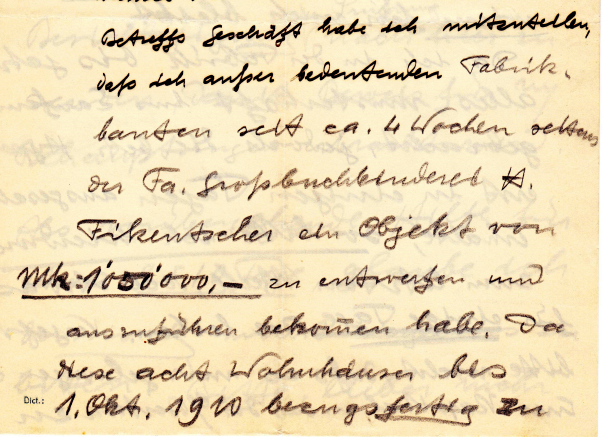 Betreffs Geschäft habe ich mitzuteilen,
daß ich außer bedeutenden Fabrik-
bauten seit ca. 4 Wochen seitens
der Fa. Großbuchbinderei H.
Fikentscher ein Objekt von
Mk: 1'050'000,- zu entwerfen und
auszuführen bekom̅en habe. Da
diese acht Wohnhäuser bis
Dict.:
1. Okt. 1910 bezugsfertig zu